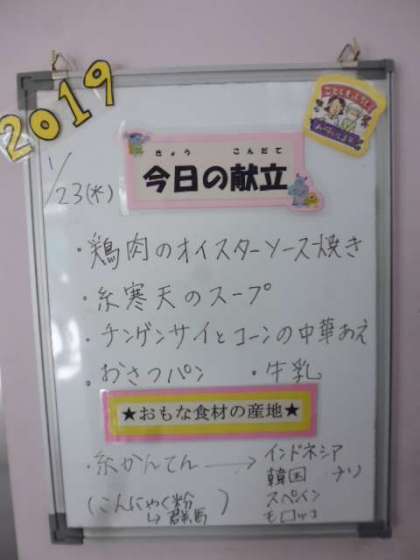 2019
ことしもよろしく
おねがいします
1/23(水)
きょう こんだて
今日の献立
・鶏肉のオイスターソース焼き
・糸寒天のスープ
・チンゲンサイとコーンの中華あえ
。おさつパン ・牛乳
★おもな食材の産地★
・糸かんてん → インドネシア
韓国 チリ
(こんにゃく粉 スペイン
↳群馬 ) モロッコ